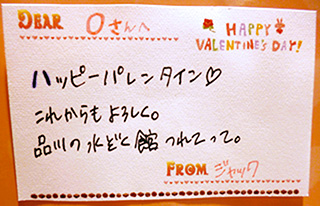 DEAR Oさんへ
HAPPY
VALENTINE'S DAY!
ハッピーバレンタイン♡
これからもよろしく。
品川の水ぞく館つれてって。
FROM ジャック